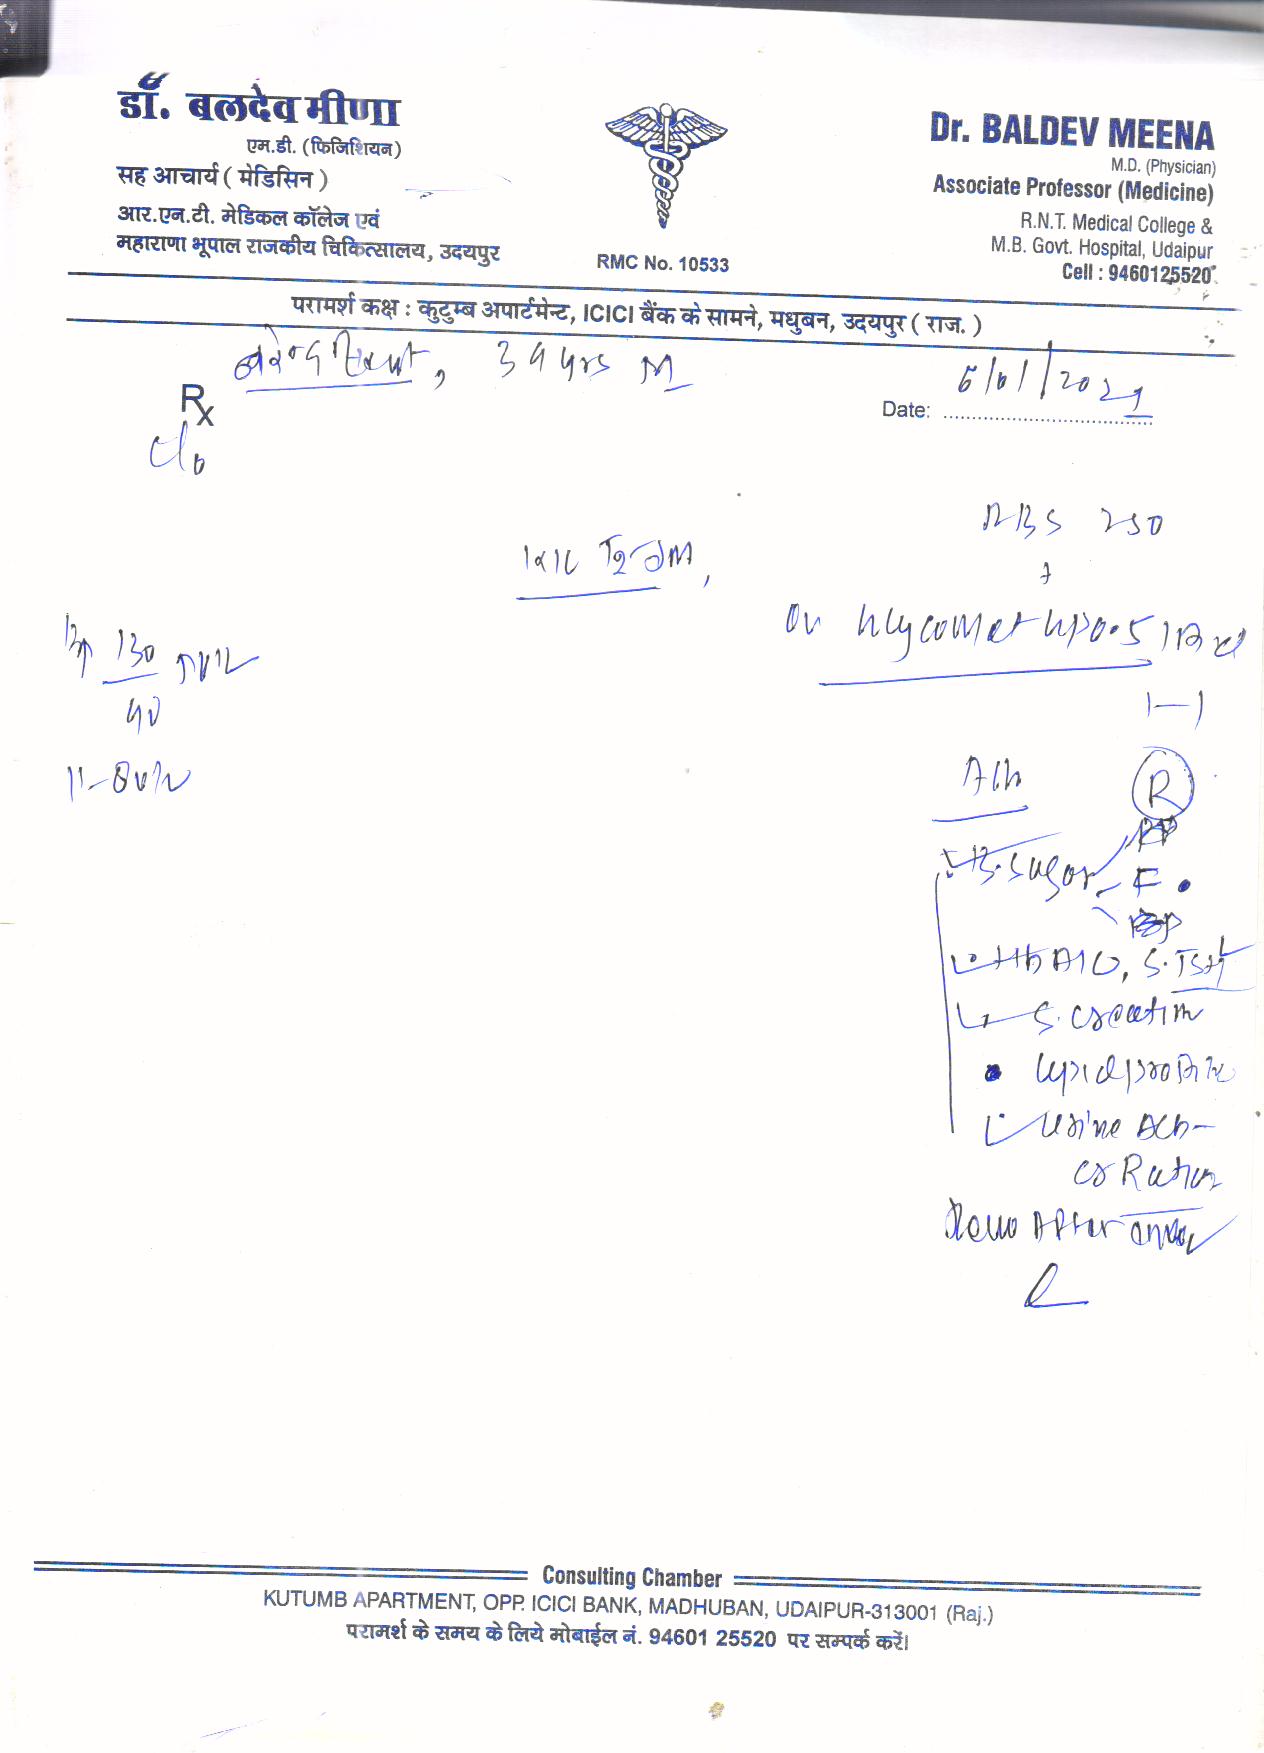 डॉ. बलदेव मीणा
एम.डी. (फिजिशियन)
सह आचार्य ( मेडिसिन )
आर.एन.टी. मेडिकल कॉलेज एवं
महाराणा भूपाल राजकीय चिकित्सालय, उदयपुर
RMC No. 10533
Dr. BALDEV MEENA
M.D. (Physician)
Associate Professor (Medicine)
R.N.T. Medical College &
M.B. Govt. Hospital, Udaipur
Cell : 9460125520
परामर्श कक्ष : कुटुम्ब अपार्टमेन्ट, ICICI बैंक के सामने, मधुबन, उदयपुर ( राज. )
yrs M
Rx
Date: /2021
C/o
RBS 250
T2DM,
On Glycomet GP 0.5
BP 130
90
1-1
Adv
R
B. Sugar - F
HbA1C, S. TSH
S. Creatin
Lipid profile
Urine Alb-
cr Ratio
After
Consulting Chamber
KUTUMB APARTMENT, OPP. ICICI BANK, MADHUBAN, UDAIPUR-313001 (Raj.)
परामर्श के समय के लिये मोबाईल नं. 94601 25520 पर सम्पर्क करें।